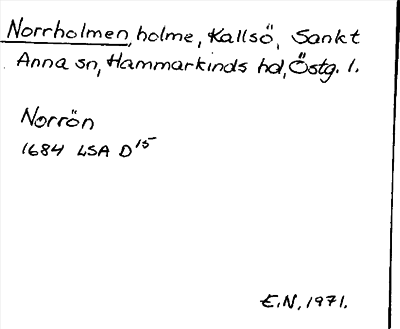 Norrholmen, holme, Kallsö, Sankt
Anna sn, Hammarkinds hd, Östg. l.
Norrön
1684 LSA D 15
E.N, 1971.